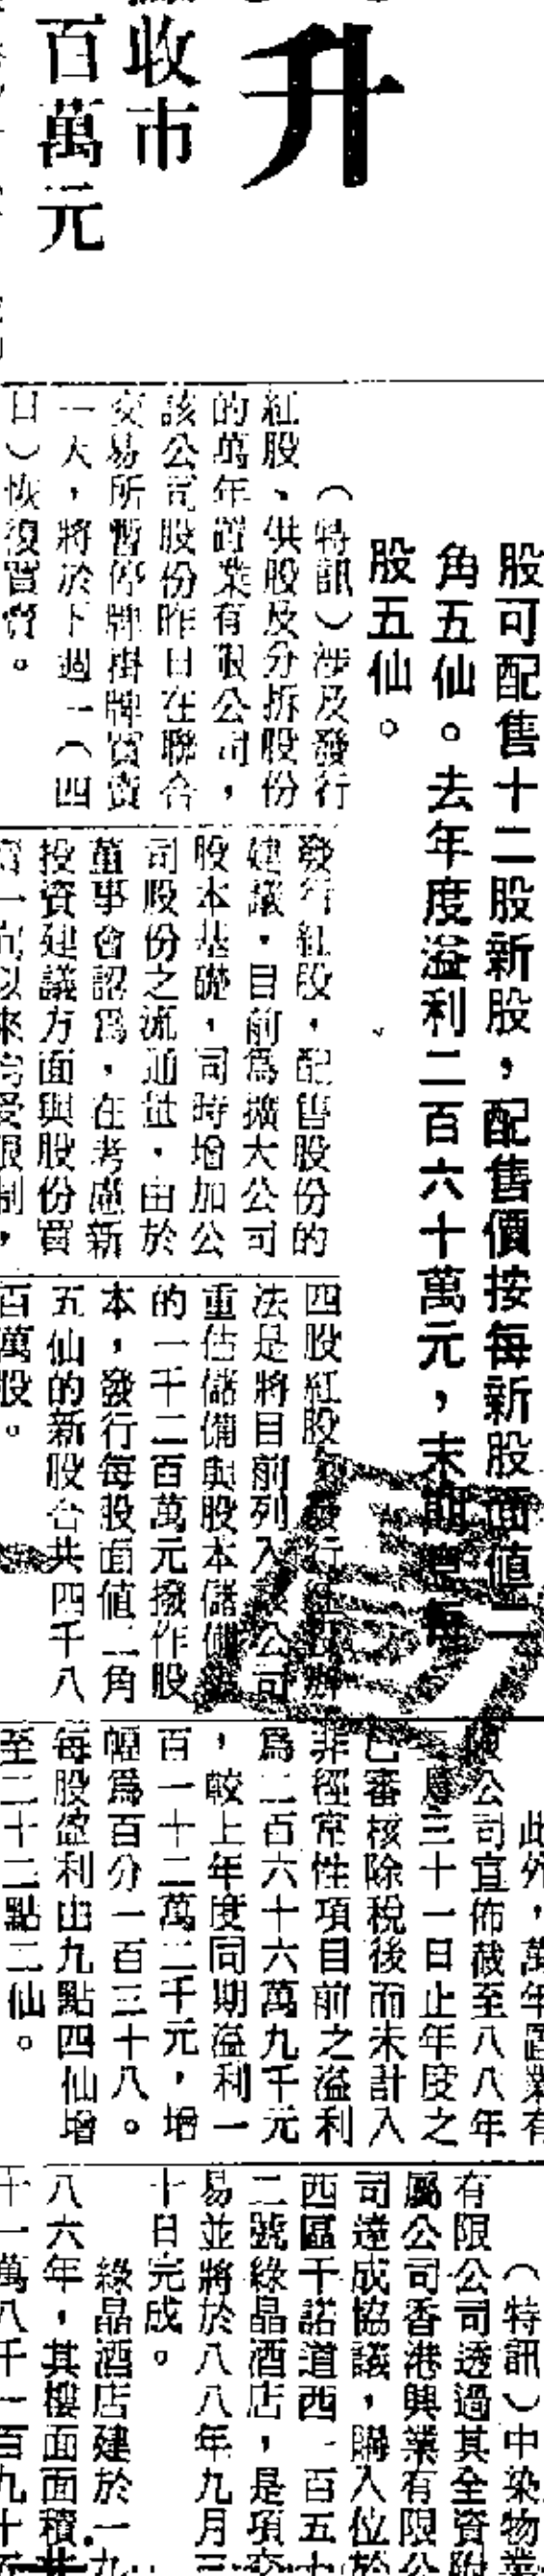 升
收市
百萬元
股可配售十二股新股，配售價按每新股面值二
角五仙。去年度溢利二百六十萬元，末期息每
股五仙。
（特訊）涉及發行
紅股、供股及分拆股份
的萬年置業有限公司，
該公司股份昨日在聯合
交易所暫停牌掛牌買賣
一天，將於下週一（四
日）恢復買賣。
發行紅股，配售股份的
建議，目前為擴大公司
股本基礎，同時增加公
司股份之流通量，由於
董事會認為，在考慮新
投資建議方面與股份買
賣一向以來均受限制，
四股紅股
法是將目前列入該公司
重估儲備與股本儲備
的一千二百萬元撥作股
本，發行每股面值二角
五仙的新股合共四千八
百萬股。
此外，萬年置業有
限公司宣佈截至八八年
三月三十一日止年度之
已審核除稅後而未計入
非經常性項目前之溢利
為二百六十六萬九千元
，較上年度同期溢利一
百一十二萬二千元，增
幅為百分一百三十八。
每股盈利由九點四仙增
至二十二點二仙。
（特訊）中染物業
有限公司透過其全資附
屬公司香港興業有限公
司達成協議，購入位於
西區干諾道西一百五十
二號綠晶酒店，是項交
易並將於八八年九月三
十日完成。
綠晶酒店建於一九
八六年，其樓面面積
十一萬八千一百九十